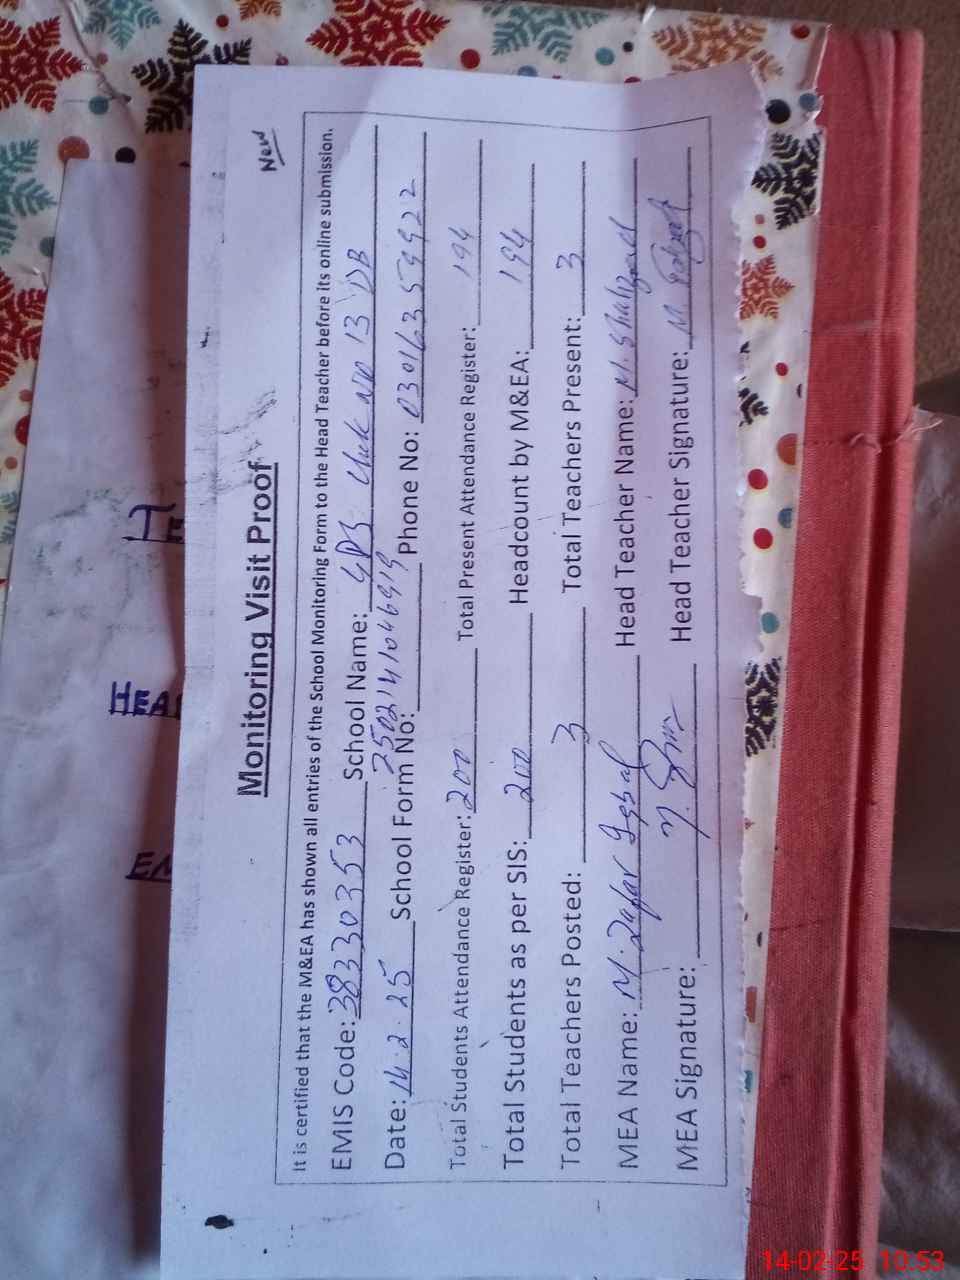 New
Monitoring Visit Proof
It is certified that the M&EA has shown all entries of the School Monitoring Form to the Head Teacher before its online submission.
EMIS Code: 38330353 School Name: GPS Chak No 13 DB
Date: 14.2.25 School Form No: 2502141046919 Phone No: 03016359922
Total Students Attendance Register: 200 Total Present Attendance Register: 194
Total Students as per SIS: 200 Headcount by M&EA: 194
Total Teachers Posted: 3 Total Teachers Present: 3
MEA Name: M. Zafar Iqbal Head Teacher Name: M. Shahzad
MEA Signature: Head Teacher Signature: M
HEA
EM
14-02-25 10:53